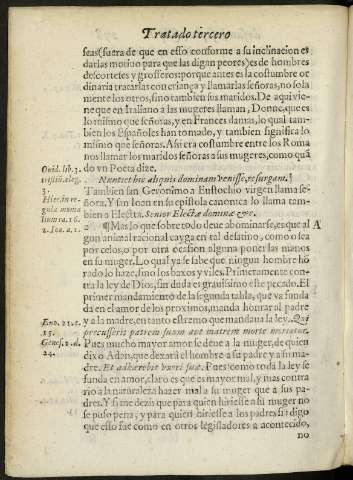 Tratado tercero
seas(fuera de que en esso conforme a su inclinacion es
darlas motiuo para que las digan peores) es de hombres
descorteses y grosseros: porque antes es la costumbre or
dinaria tratarlas con criança y llamarlas señoras, no sola
mente los otros, sino tambien sus maridos. De aqui vie-
ne que en Italiano a las mugeres llaman, Donne, que es
lo mismo que señoras, y en Frances damas, lo qual tam-
bien los Españoles han tomado, y tambien significa lo
mismo que señoras. Assi era costumbre entre los Roma
nos llamar los maridos señoras a sus mugeres, como quã
do vn Poeta dize.
Ouid. lib. 3.
tristiũ. eleg.
3.
Nuntiet huc aliquis dominam venisse, resurgam.
Tambien san Geronimo a Eustochio virgen llama se-
ñora. Y san Ioan en su epistola canonica lo llama tam-
bien a Electa. Senior Electæ dominæ &c.
Hier. in re
gula mona
luum ca. 16.
2. Ioa. a. 1.
¶Mas lo que sobre todo deue abominarse, es que al
gun animal racional cayga en tal desatino, como o sea
por celos, o por otra ocasion alguna poner las manos
en su muger. Lo qual ya se sabe que ningun hombre hõ
rado lo haze, sino los baxos y viles. Primeramente con-
tra la ley de Dios, sin duda es grauissimo este pecado. El
primer mandamiento de la segunda tabla, que va funda
da en el amor de los proximos, manda honrar al padre
y a la madre, en tanto estremo que mandaua la ley. Qui
percusserit patrem suum aut matrem morte moriatur.
Exo. 21. c.
15.
Genes. 2. d.
24.
Pues mucho mayor amor se deue a la muger, de quien
dixo Adan, que dexará el hombre a su padre y a su ma-
dre. Et adhærebit vxori suæ. Pues como toda la ley se
funda en amor, claro es que es mayor mal, y mas contra
rio a la naturaleza hazer mal a su muger que a sus pa-
dres. Y si me dezis que para quien hiriesse a su muger no
se puso pena, y para quien hiriesse a los padres si: digo
que esso fue como en otros legisladores a acontecido,
no